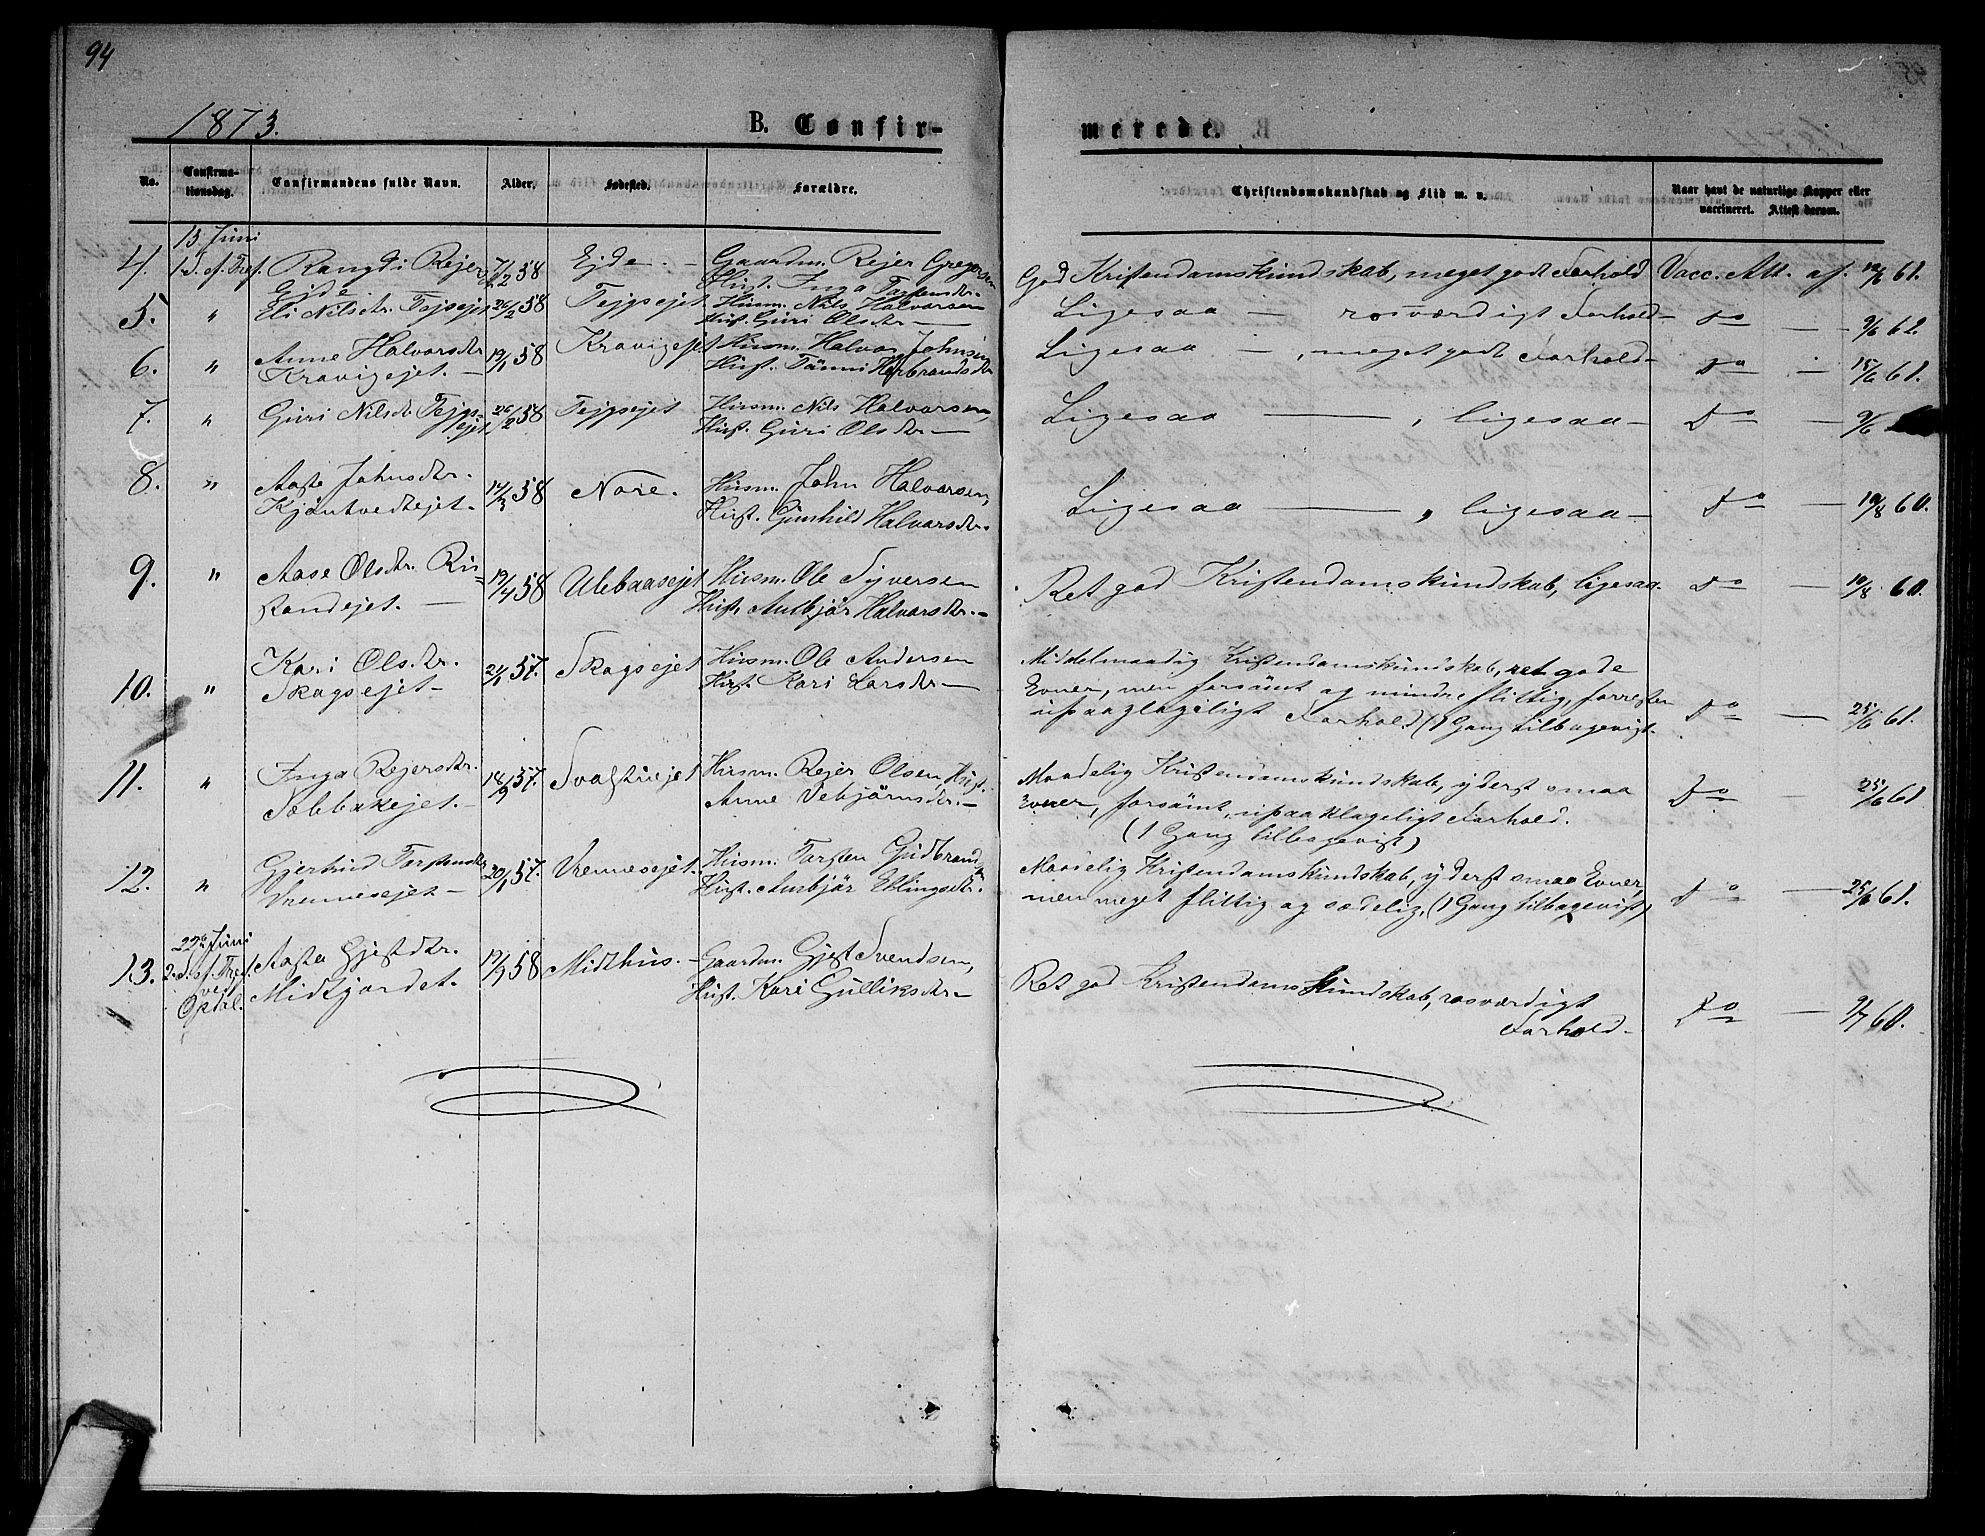 94
1873.
B. Confirmerede.
No.
Confirmationsdag.
Confirmandens fulde Navn.
Alder.
Fødested.
Forældre.
Christendomskundskab og Flid m. v.
Naar havt de naturlige Kopper eller vaccineret. Attest derom.
15 Juni
4. 1.S.f.Tref. Rangdi Rejer Ejde. Gaardm. Rejer Gregersen God Kristendomskundskab, meget godt Forhold Vacc. Att. af 12/6 61.
Ejde 7/2 58 Hust. Inga Torstensdr.
5. " Eli Nilsdr. Tejpsejet 26/2 58 Tejpsejet Husm. Nils Halvorsen Ligesaa — rosværdigt Forhold — Do — 9/6 62.
Hust. Guri Olsdr. —
6. " Anne Halvorsdr. 19/1 58 Kravigejet Husm. Halvor Johnsen Ligesaa — , meget godt Forhold — Do — 15/6 61.
Kravigejet. — Hust. Tönni Herbrandsdr.
7. " Guri Nilsdr. Tejps- 26/2 58 Tejpsejet Husm. Nils Halvorsen, Ligesaa — , ligesaa — Do — 9/6
ejet. Hust. Guri Olsdr. —
8. " Aaste Johnsdr. 14/3 58 Nore. Husm. John Halvorsen, Ligesaa — , ligesaa — Do — 10/8 60.
Kjöntvedtejet. Hust. Gunhild Halvorsdr.
9. " Aase Olsdr. Ru- 19/4 58 Ulebaasejet Husm. Ole Syversen Ret god Kristendomskundskab, ligesaa. Do — 10/8 60.
standejet. — Hust. Anbjör Halvorsdr. —
10. " Kari Olsdr. 24/1 57. Skagsejet Husm. Ole Andersen Middelmaadig Kristendomskundskab, ret gode
Skagsejet — Hust. Kari Larsdr — Evner, men forsömt og mindre flittig, forresten
upaaklageligt Forhold (1 Gang tilbagevigt. Do — 25/6 61.
11. " Inga Rejersdr. 18/9 57. Husm. Rejer Olsen, Hust. Maadelig Kristendomskundskab, yderst smaa Do — 25/6 61
Sobbakejet. — Anne Vebjörnsdr. — Evner, forsömt, upaaklageligt Forhold.
(1 Gang tilbagevigt)
12. " Gjertrud Torstensdr. 20/1 57. Vrennesejet. Husm. Torsten Gudbrands. Maadelig Kristendomskundskab, yderst smaa Evner,
Vrennesejet — Hust. Anbjör Ellingsdr. men meget flittig og sædelig. (1 Gang tilbagevigt) Do — 25/6 61.
22de Juni
13. 2.S.f.Tref. Aasta Gjestdtr. 19/1 58 Midthus. — Gaardm. Gjest Svendsen, Ret god Kristendomskundskab, rosværdigt
ved Opdal. Midtjordet. Hust. Kari Gulliksdr — Forhold — Do — 9/7 60.